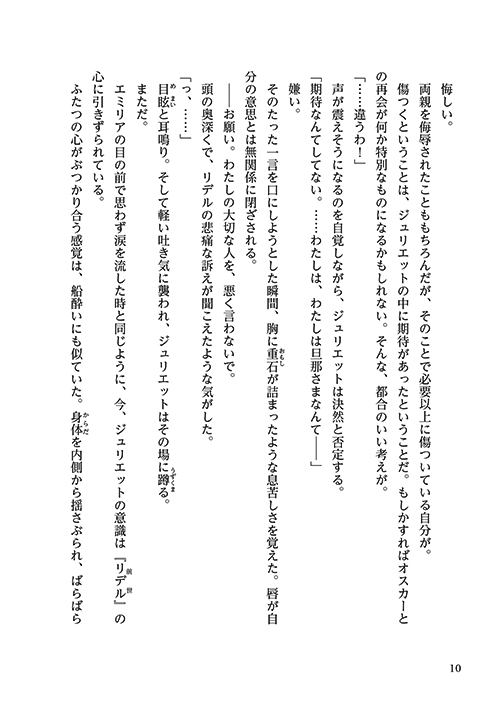 悔しい。
両親を侮辱されたことももちろんだが、そのことで必要以上に傷ついている自分が。
傷つくということは、ジュリエットの中に期待があったということだ。もしかすればオスカーと
の再会が何か特別なものになるかもしれない。そんな、都合のいい考えが。
「……違うわ！」
声が震えそうになるのを自覚しながら、ジュリエットは決然と否定する。
「期待なんてしてない。……わたしは、わたしは旦那さまなんて――」
嫌い。
そのたった一言を口にしようとした瞬間、胸に重石が詰まったような息苦しさを覚えた。唇が自
分の意思とは無関係に閉ざされる。
――お願い。わたしの大切な人を、悪く言わないで。
頭の奥深くで、リデルの悲痛な訴えが聞こえたような気がした。
「っ、……」
目眩と耳鳴り。そして軽い吐き気に襲われ、ジュリエットはその場に蹲る。
まただ。
エミリアの目の前で思わず涙を流した時と同じように、今、ジュリエットの意識は『リデル』の
心に引きずられている。
ふたつの心がぶつかり合う感覚は、船酔いにも似ていた。身体を内側から揺さぶられ、ばらばら
おもし
めまい
うずくま
前世
からだ
10